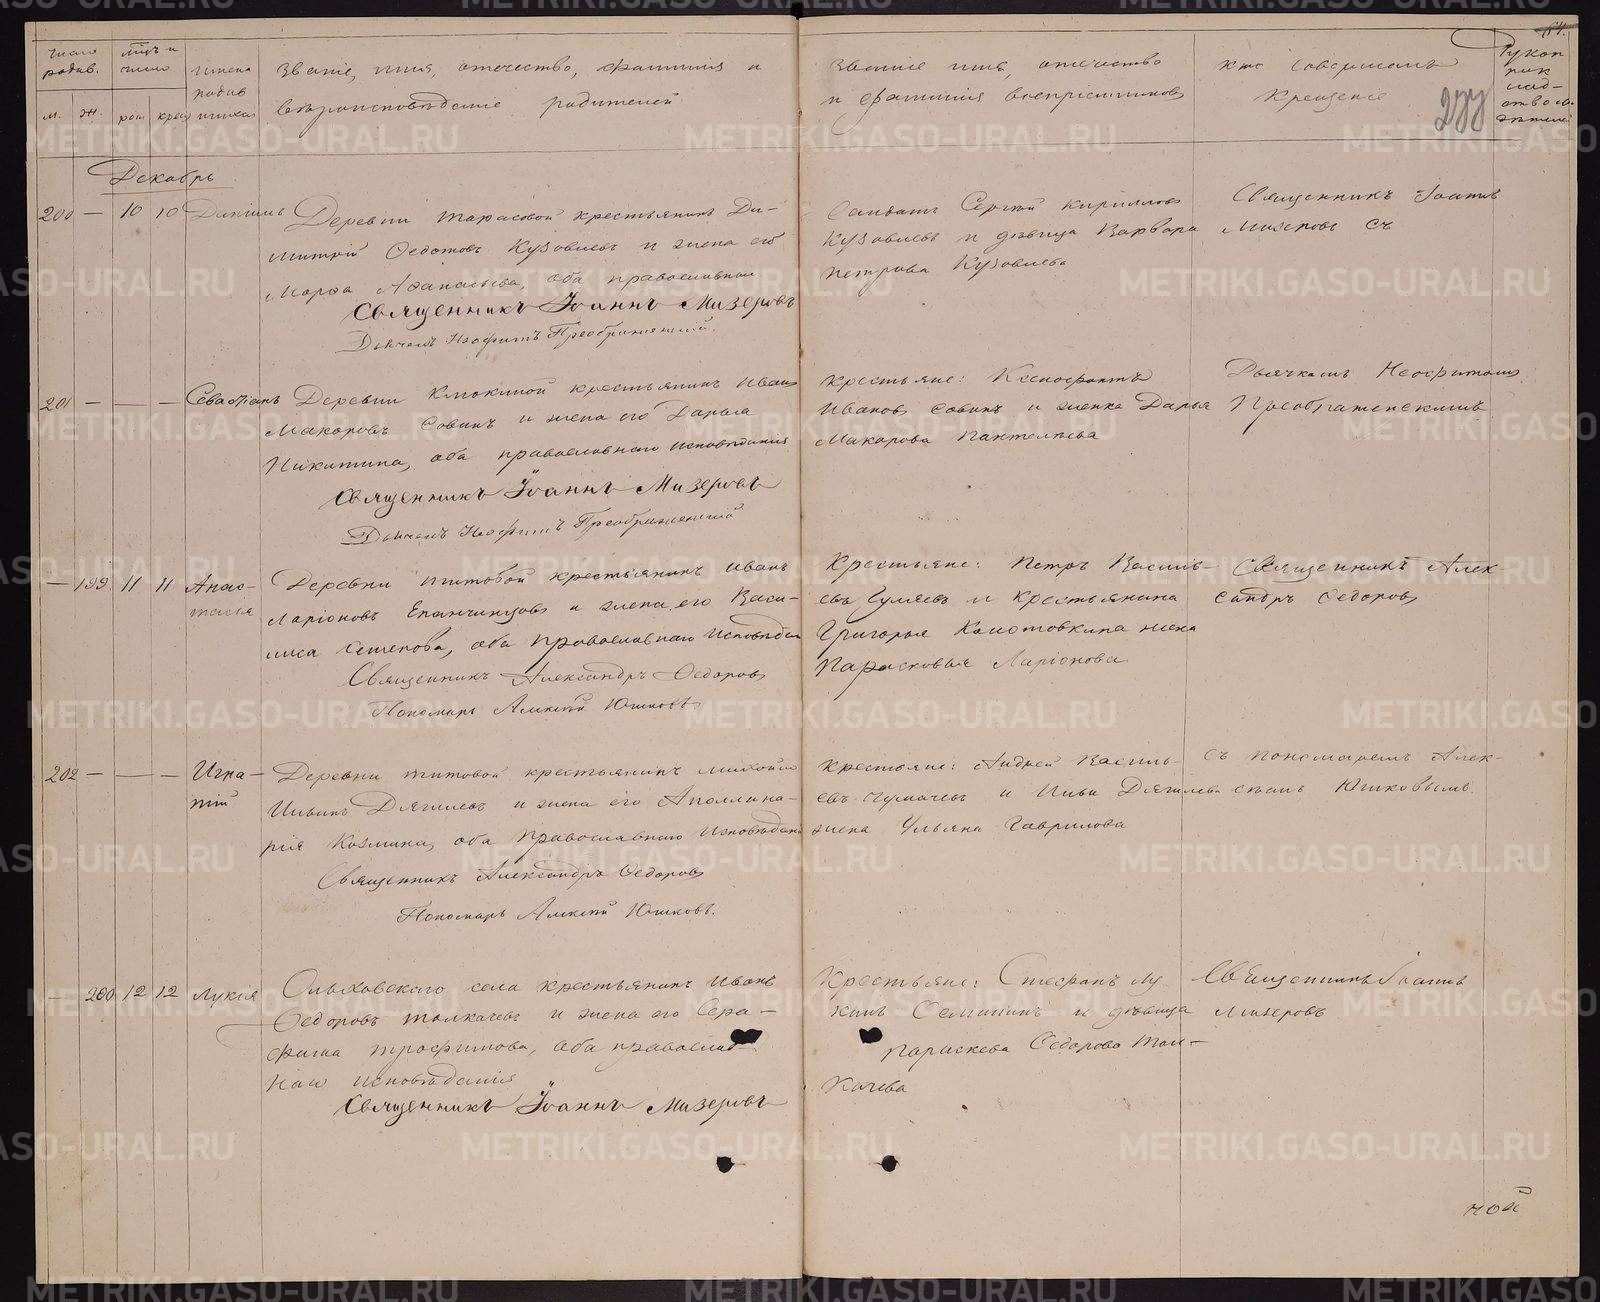 Число родив.
мѣць и число
Имена родив
м. ж. рож крещ
Званіе, имя, отечество, фамилія и
вѣроисповѣданіе родителей
Званіе имя, отечество
и фамилія воспріемниковъ
кто совершалъ
крещеніе
277
Декабрь
200 — 10 10 Даніилъ
Деревни Тарасовой крестьянинъ Ди-
митрій Ѳедотовъ Кузовлевъ и жена его
Марѳа Аѳанасьева, оба православнаго
Священникъ Іоаннъ Мизеровъ
Дьячекъ Неофитъ Преображенскій.
Солдатъ Сергѣй Кириловъ
Кузовлевъ и дѣвица Варвара
Петрова Кузовлева
Священникъ Іоаннъ
Мизеровъ съ
201 — — — Севастіанъ
Деревни Клюкиной крестьянинъ Иванъ
Макаровъ Совинъ и жена его Дарья
Никитина, оба православнаго исповѣданія
Священникъ Іоаннъ Мизеровъ
Дьячекъ Неофитъ Преображенскій
Крестьяне: Ксенофонтъ
Ивановъ Совинъ и женка Дарья
Макарова Пантелѣева
Дьячкомъ Неофитомъ
Преображенскимъ
— 199 11 11 Анас-
тасья
Деревни Титовой крестьянинъ Иванъ
Ларіоновъ Епанчинцовъ и жена его Васи-
лиса Семенова, оба православнаго исповѣдан
Священникъ Александръ Ѳедоровъ
Пономарь Алексѣй Юшковъ
Крестьяне: Петръ Василь-
евъ Гуляевъ и крестьянина
Григорья Колотовкина жена
Парасковья Ларіонова
Священникъ Алек-
сандръ Ѳедоровъ
202 — — — Игна-
тій
Деревни Титовой крестьянинъ Михайло
Ильинъ Дягилевъ и жена его Аполлина-
рія Козмина, оба православнаго исповѣдан
Священникъ Александръ Ѳедоровъ
Пономарь Алексѣй Юшковъ.
Крестьяне: Андрей Василь-
евъ Чумачевъ и Ильи Дягилева
жена Ульяна Гаврилова
съ пономаремъ Алек-
сѣемъ Юшковымъ.
— 200 12 12 Лукія
Ольховскаго села крестьянинъ Иванъ
Ѳедоровъ Толкачевъ и жена его Сера-
фима Трофимова, оба православ-
наго исповѣданія
Священникъ Іоаннъ Мизеровъ
Крестьяне: Стефанъ Лу
кинъ Семинин и дѣвица
Параскева Ѳедорова Тол-
качева
Священникъ Іоаннъ
Мизеровъ
METRIKI.GASO-URAL.RU